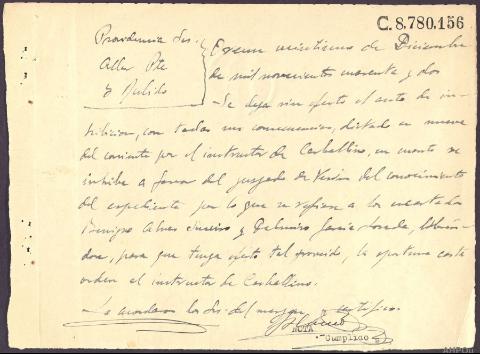 C.8.780.156
Providencia Sres.
Aller Pte
y Pulido
veintiuno de Diciembre
de mil novecientos cuarenta y dos
Se deja sin efecto el auto de in-
hibicion, con todas sus consecuencias, dictado en nueve
del corriente por el instructor de Carballino, en cuanto se
inhibe a favor del juzgado de Verin del conocimiento
del expediente por lo que se refiere a los encartados
y Delmiro Garcia Losada, librán-
dose, para que tenga efecto tal proveido, la oportuna carta
orden al instructor de Carballino.
Lo acordaron los Sres. del margen, y certifico.
NOTA
Cumplico
AHPOu